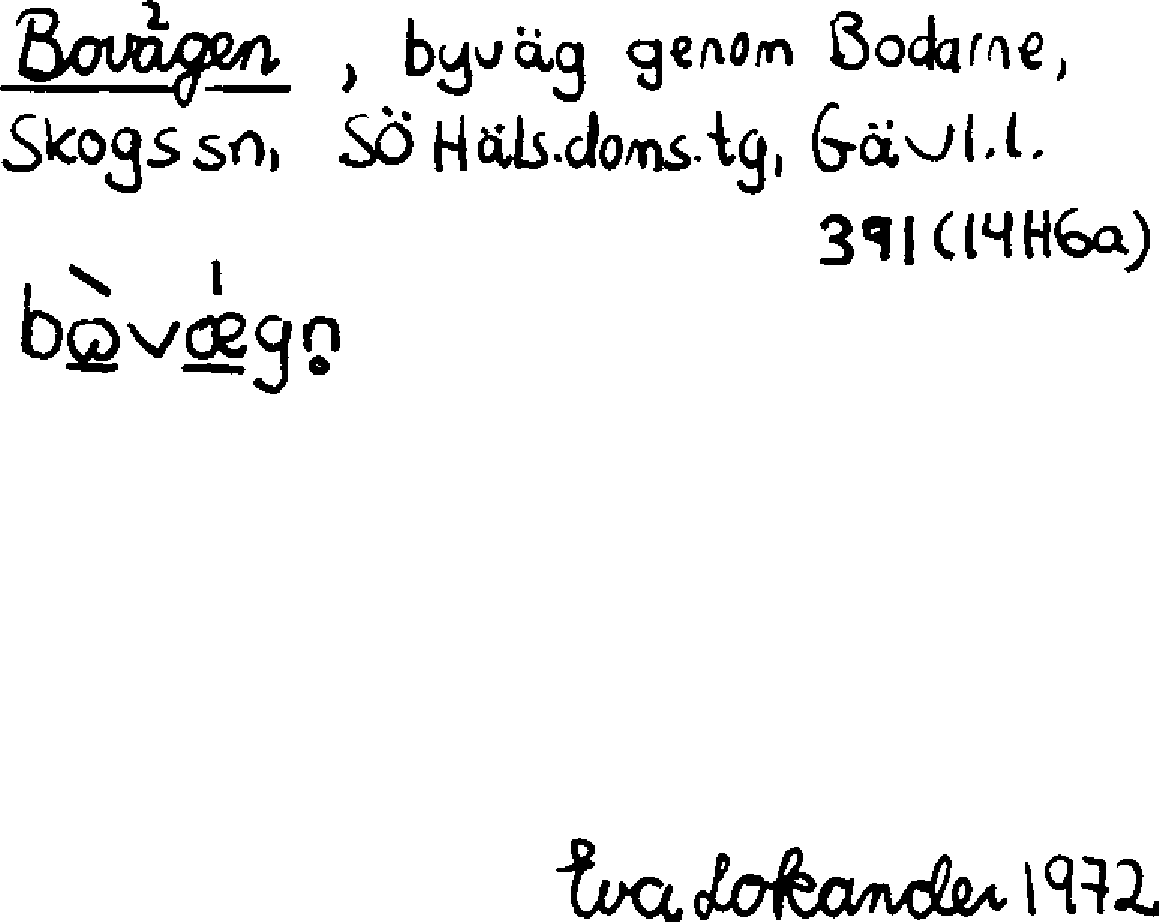 Bovägen², byväg genom Bodarne,
Skogs sn, SÖ Häls. doms. tg, Gävl. l.
391 (14H6a)
bɷ̀vǽgn̥
Eva Lokander 1972